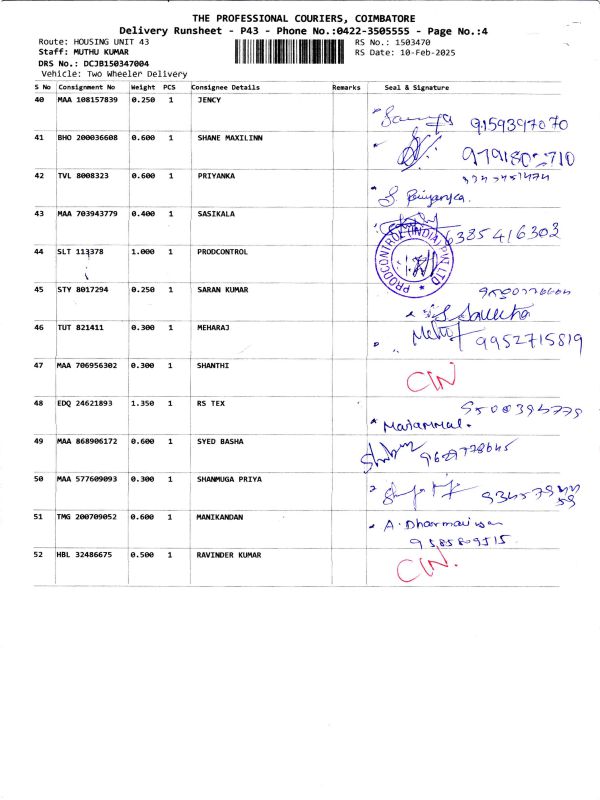 THE PROFESSIONAL COURIERS, COIMBATORE
Delivery Runsheet - P43 - Phone No.:0422-3505555 - Page No.:4
Route: HOUSING UNIT 43 RS No.: 1503470
Staff: MUTHU KUMAR RS Date: 10-Feb-2025
DRS No.: DCJB150347004
Vehicle: Two Wheeler Delivery
S No Consignment No Weight PCS Consignee Details Remarks Seal & Signature
40 MAA 108157839 0.250 1 JENCY
9159397070
41 BHO 200036608 0.600 1 SHANE MAXILINN
9791802710
42 TVL 8008323 0.600 1 PRIYANKA
S. Priyanka.
43 MAA 703943779 0.400 1 SASIKALA
6385416303
44 SLT 113378 1.000 1 PRODCONTROL
PRODCONTROL (INDIA) PVT LTD
45 STY 8017294 0.250 1 SARAN KUMAR
46 TUT 821411 0.300 1 MEHARAJ
9952715819
47 MAA 706956302 0.300 1 SHANTHI
CIN
48 EDQ 24621893 1.350 1 RS TEX
49 MAA 868906172 0.600 1 SYED BASHA
50 MAA 577609093 0.300 1 SHANMUGA PRIYA
51 TMG 200709052 0.600 1 MANIKANDAN
52 HBL 32486675 0.500 1 RAVINDER KUMAR
CIN.